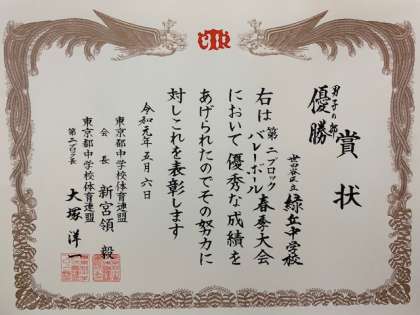 賞状
男子の部
優勝
世田谷区立 緑丘中学校
右は第二ブロック
バレーボール春季大会
において優秀な成績を
あげられたのでその努力に
対しこれを表彰します
令和元年五月六日
東京都中学校体育連盟
会長 新宮領 毅
東京都中学校体育連盟
第二ブロック長 大塚洋一